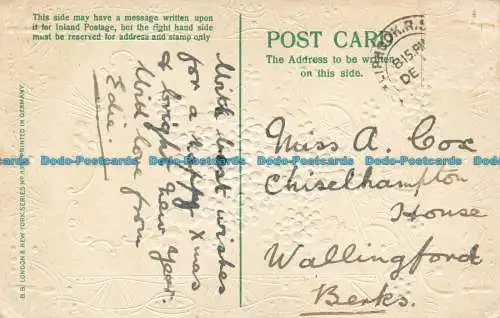 This side may have a message written upon
it for Inland Postage, but the right hand side
must be reserved for address and stamp only
POST CARD
The Address to be written
on this side.
8.15 PM
DE
With best wishes
for a happy Xmas
& bright new year.
With love from
Edie
Miss A. Cox
Chiselhampton
House
Wallingford
Berks.
B.B. LONDON & NEW YORK. SERIES No PRINTED IN GERMANY.
Dodo-Postcards Dodo-Postcards Dodo-Postcards Dodo-Postcards
Dodo-Postcards Dodo-Postcards Dodo-Postcards Dodo-Postcards